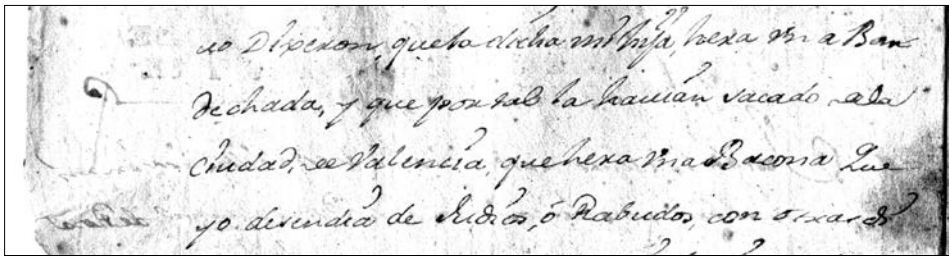 no Dixeron, que la dicha mi hija, hera Vna Ban
dechada, y que por tal la hauian sacado de la
Ciudad, de Valencia, que hera Vna Bacona Que
yo decendia de Judios, ó Rabudos, con